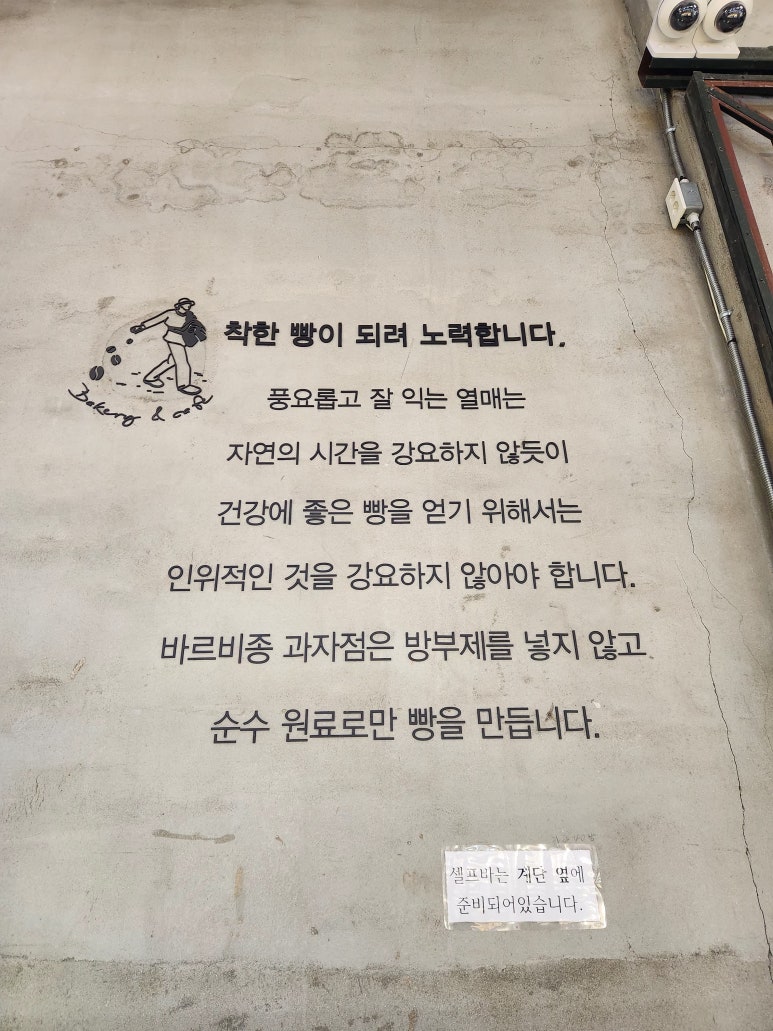 착한 빵이 되려 노력합니다.
Bakery & cafe
풍요롭고 잘 익는 열매는
자연의 시간을 강요하지 않듯이
건강에 좋은 빵을 얻기 위해서는
인위적인 것을 강요하지 않아야 합니다.
바르비종 과자점은 방부제를 넣지 않고
순수 원료로만 빵을 만듭니다.
셀프바는 계단 옆에
준비되어있습니다.